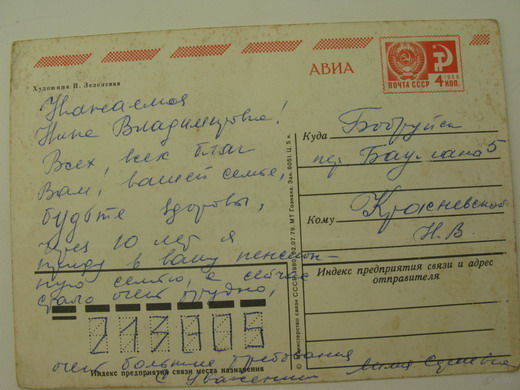 Художник И. Зеленская
АВИА
ПОЧТА СССР
1966
4 КОП.
Уважаемая
Нина Владимировна!
Всех, всех благ
Вам, вашей семье,
будьте здоровы,
через 10 лет я
приду в вашу пенсион-
ную семью, а сейчас
стало очень трудно,
очень большие требования
С уважением
Куда Бобруйск
пер. Баумана 5
Кому Красневской
Н. В.
Министерство связи СССР
07.79. МТ Гознака. Зак. 6051. Ц. 5 к.
Индекс предприятия связи и адрес
отправителя
213805
Индекс предприятия связи места назначения